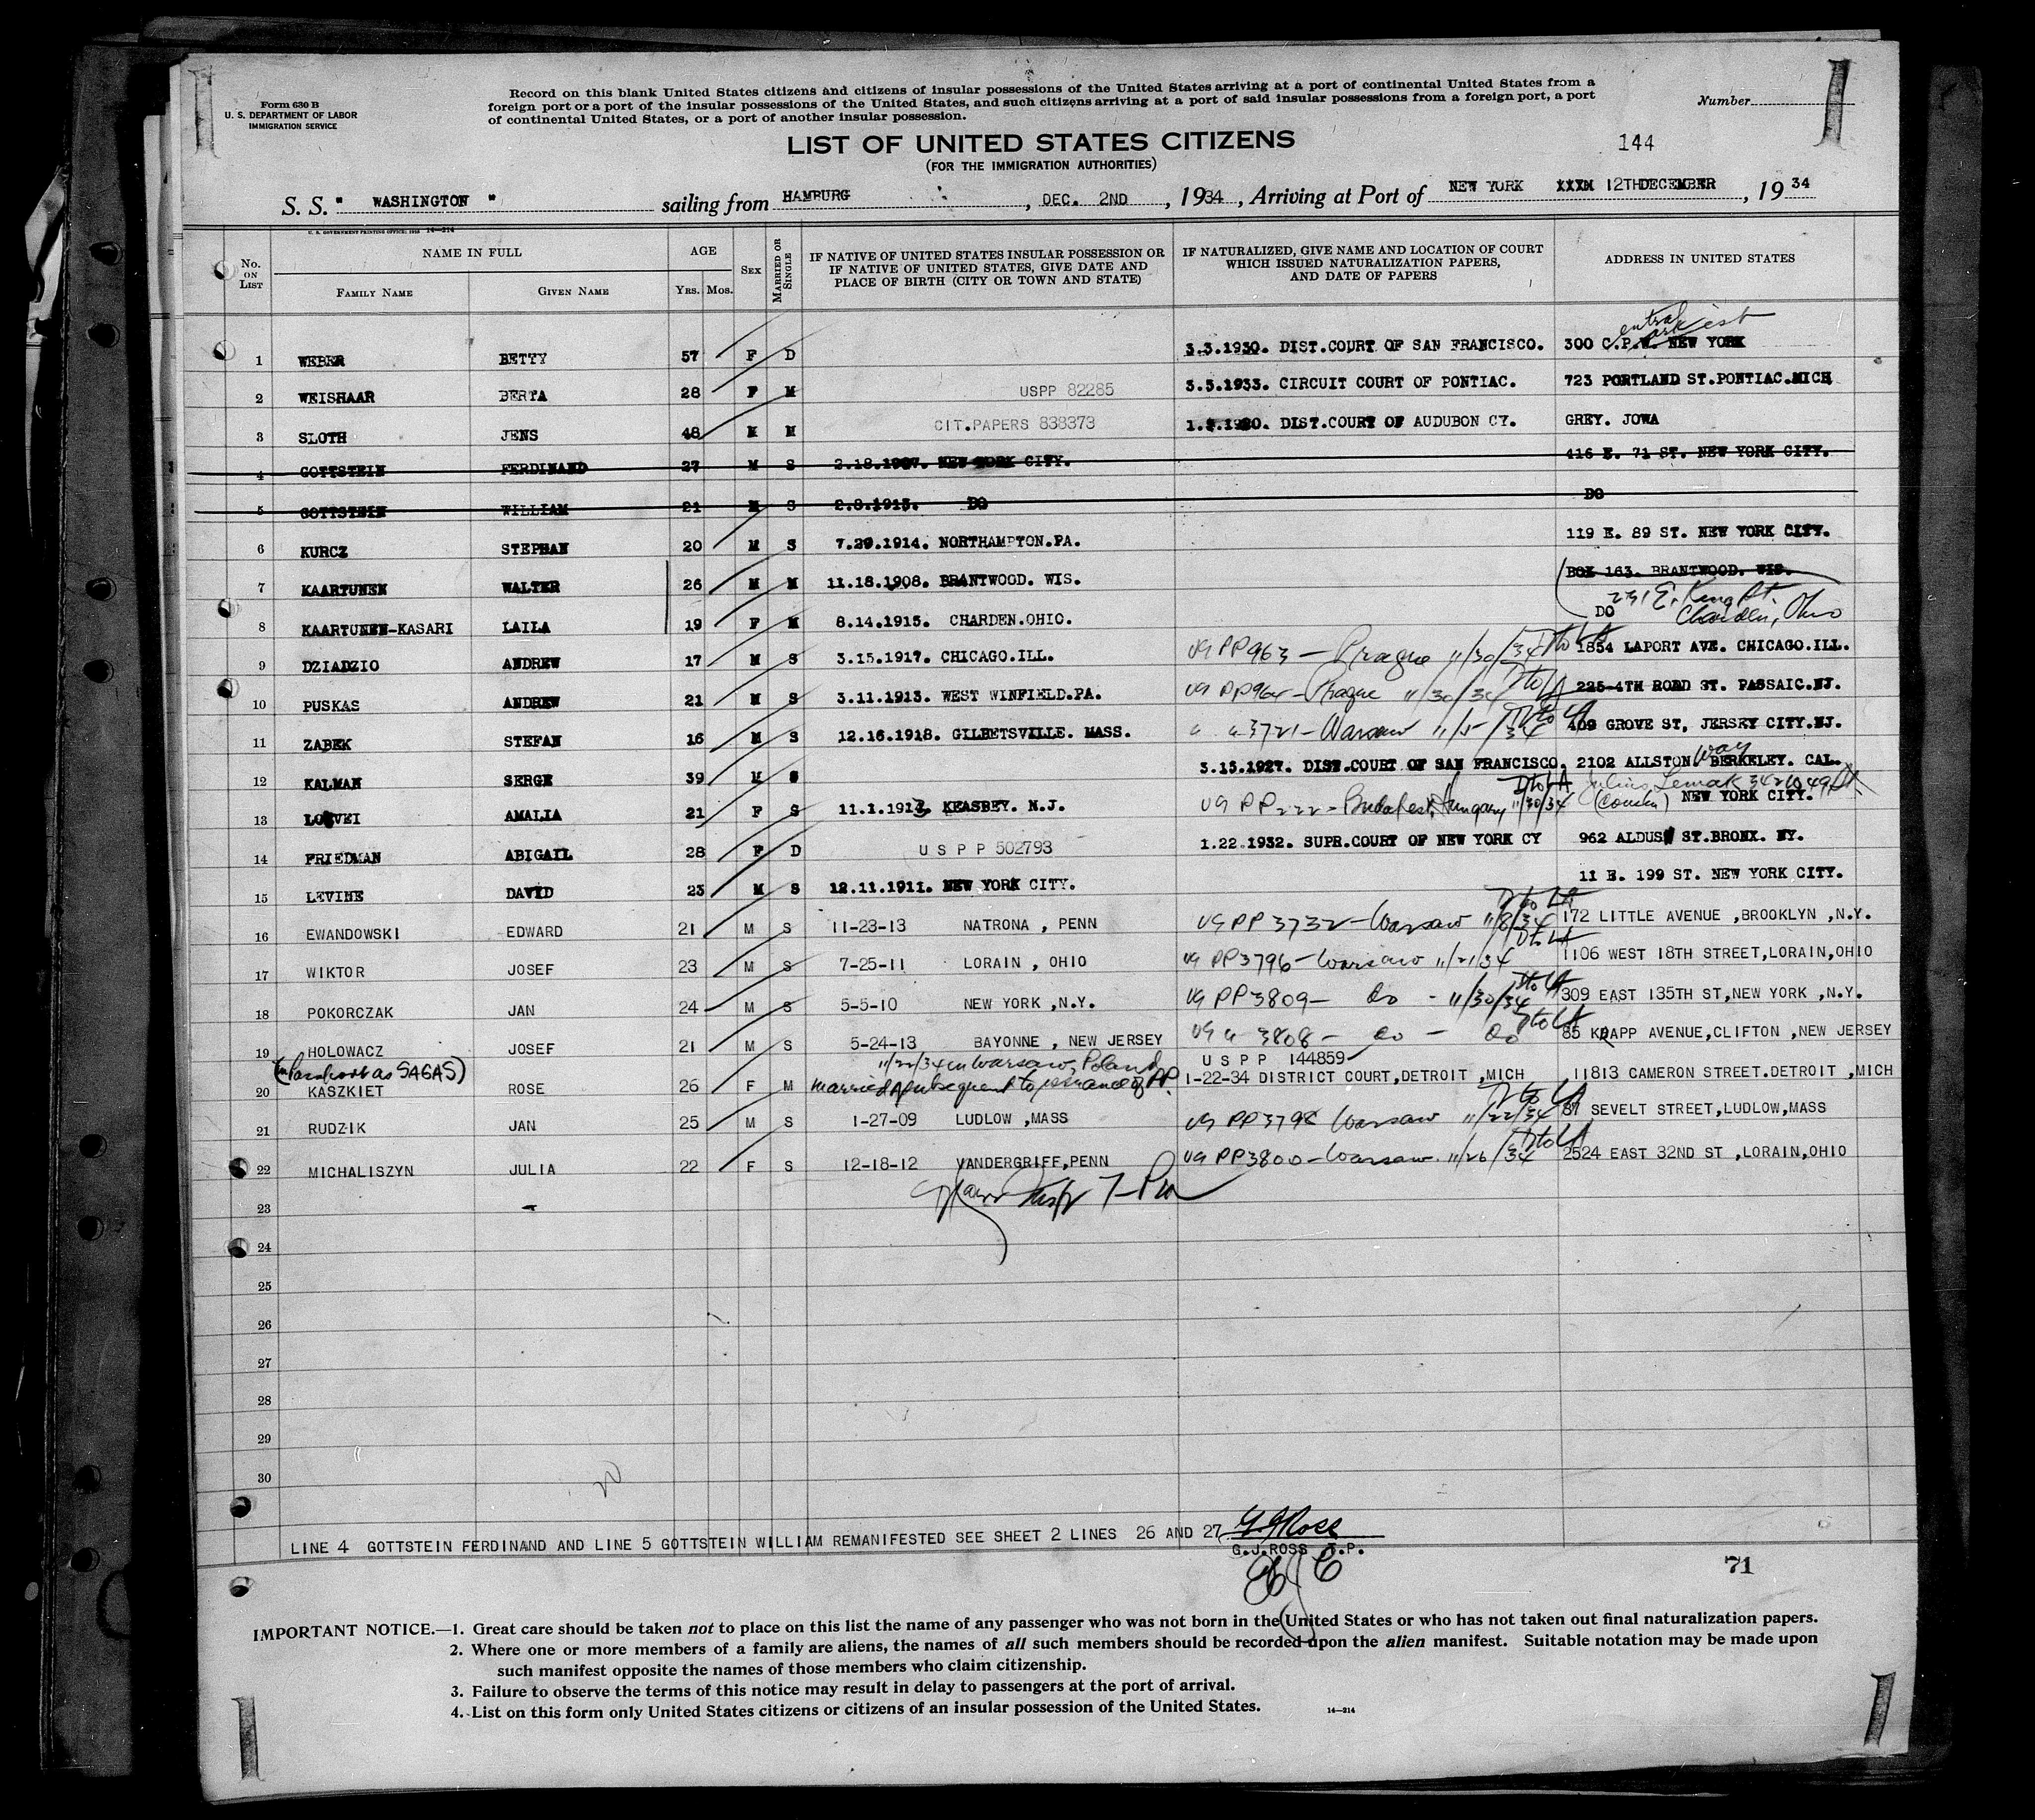 Form 630 B
U. S. DEPARTMENT OF LABOR
IMMIGRATION SERVICE
Record on this blank United States citizens and citizens of insular possessions of the United States arriving at a port of continental United States from a
foreign port or a port of the insular possessions of the United States, and such citizens arriving at a port of said insular possessions from a foreign port, a port
of continental United States, or a port of another insular possession.
Number
144
LIST OF UNITED STATES CITIZENS
(FOR THE IMMIGRATION AUTHORITIES)
S. S. " WASHINGTON " sailing from HAMBURG , DEC. 2ND , 1934 , Arriving at Port of NEW YORK XXXM 12THDECEMBER , 1934
U. S. GOVERNMENT PRINTING OFFICE: 14—214
No. ON LIST
NAME IN FULL
FAMILY NAME GIVEN NAME
AGE
YRS. MOS.
SEX
MARRIED OR SINGLE
IF NATIVE OF UNITED STATES INSULAR POSSESSION OR
IF NATIVE OF UNITED STATES, GIVE DATE AND
PLACE OF BIRTH (CITY OR TOWN AND STATE)
IF NATURALIZED, GIVE NAME AND LOCATION OF COURT
WHICH ISSUED NATURALIZATION PAPERS,
AND DATE OF PAPERS
ADDRESS IN UNITED STATES
entral ark est
1 WEBER BETTY 57 F D 3.3.1930. DIST.COURT OF SAN FRANCISCO. 300 C.P.W. NEW YORK
2 WEISHAAR BERTA 28 F M USPP 82285 3.3.1933. CIRCUIT COURT OF PONTIAC. 723 PORTLAND ST.PONTIAC.MICH
3 SLOTH JENS 48 M M CIT.PAPERS 838373 DIST.COURT OF AUDUBON CY. GREY. JOWA
4 GOTTSTEIN FERDINAND 27 M S 2.18.1907. NEW YORK CITY. 416 E. 71 ST. NEW YORK CITY.
5 GOTTSTEIN WILLIAM 21 M S 2.8.1913. DO DO
6 KURCZ STEPHAN 20 M S 7.29.1914. NORTHAMPTON.PA. 119 E. 89 ST. NEW YORK CITY.
7 KAARTUNEN WALTER 26 M M 11.18.1908. BRANTWOOD. WIS. BOX 163. BRANTWOOD. WIS.
231 E. King St
Charden, Ohio
8 KAARTUNEN-KASARI LAILA 19 F M 8.14.1915. CHARDEN.OHIO. DO
9 DZIADZIO ANDREW 17 M S 3.15.1917. CHICAGO.ILL. US PP 963 — Prague 11/30/34 D to LA 1854 LAPORT AVE. CHICAGO.ILL.
10 PUSKAS ANDREW 21 M S 3.11.1913. WEST WINFIELD.PA. US PP 964 — Prague 11/30/34 D to LA 225-4TH ROAD ST. PASSAIC.NJ.
11 ZABEK STEFAN 16 M S 12.16.1918. GILBETSVILLE. MASS. " " 3721 — Warsaw 11/5/34 D to LA 409 GROVE ST, JERSEY CITY.NJ.
12 KALMAN SERGE 39 M S 3.15.1927. DIST.COURT OF SAN FRANCISCO. 2102 ALLSTON way BERKELEY. CAL.
Julius Lemak 342 W 49 St
13 AMALIA 21 F S 11.1.1913 KEASBEY. N.J. US PP 222 — Budapest, Hungary 11/30/34 D to LA (Cousin) NEW YORK CITY.
14 FRIEDMAN ABIGAIL 28 F D U S P P 502793 1.22.1932. SUPR.COURT OF NEW YORK CY 962 ALDUS ST.BRONX. NY.
15 LEVINE DAVID 23 M S 12.11.1911. NEW YORK CITY. 11 E. 199 ST. NEW YORK CITY.
16 EWANDOWSKI EDWARD 21 M S 11-23-13 NATRONA , PENN US PP 3732 — Warsaw 11/8/34 D to LA 172 LITTLE AVENUE ,BROOKLYN ,N.Y.
17 WIKTOR JOSEF 23 M S 7-25-11 LORAIN , OHIO US PP 3796 — Warsaw 11/21/34 D to LA 1106 WEST 18TH STREET,LORAIN,OHIO
18 POKORCZAK JAN 24 M S 5-5-10 NEW YORK ,N.Y. US PP 3809 — do - 11/30/34 D to LA 309 EAST 135TH ST,NEW YORK ,N.Y.
19 HOLOWACZ JOSEF 21 M S 5-24-13 BAYONNE , NEW JERSEY US " 3808 — do — do D to LA 85 KNAPP AVENUE,CLIFTON ,NEW JERSEY
(in Passport as SAGAS) 11/22/34 in Warsaw, Poland U S P P 144859
20 KASZKIET ROSE 26 F M married subsequent to issuance of PP. 1-22-34 DISTRICT COURT,DETROIT ,MICH 11813 CAMERON STREET.DETROIT ,MICH
21 RUDZIK JAN 25 M S 1-27-09 LUDLOW ,MASS US PP 3798 Warsaw 11/22/34 D to LA 87 SEVELT STREET,LUDLOW,MASS
22 MICHALISZYN JULIA 22 F S 12-18-12 VANDERGRIFF,PENN US PP 3800 — Warsaw 11/26/34 D to LA 2524 EAST 32ND ST ,LORAIN,OHIO
23
24
25
26
27
28
29
30
20
LINE 4 GOTTSTEIN FERDINAND AND LINE 5 GOTTSTEIN WILLIAM REMANIFESTED SEE SHEET 2 LINES 26 AND 27 G J Ross
G.J.ROSS T.P.
71
IMPORTANT NOTICE.—1. Great care should be taken not to place on this list the name of any passenger who was not born in the United States or who has not taken out final naturalization papers.
2. Where one or more members of a family are aliens, the names of all such members should be recorded upon the alien manifest. Suitable notation may be made upon
such manifest opposite the names of those members who claim citizenship.
3. Failure to observe the terms of this notice may result in delay to passengers at the port of arrival.
4. List on this form only United States citizens or citizens of an insular possession of the United States.
14—214